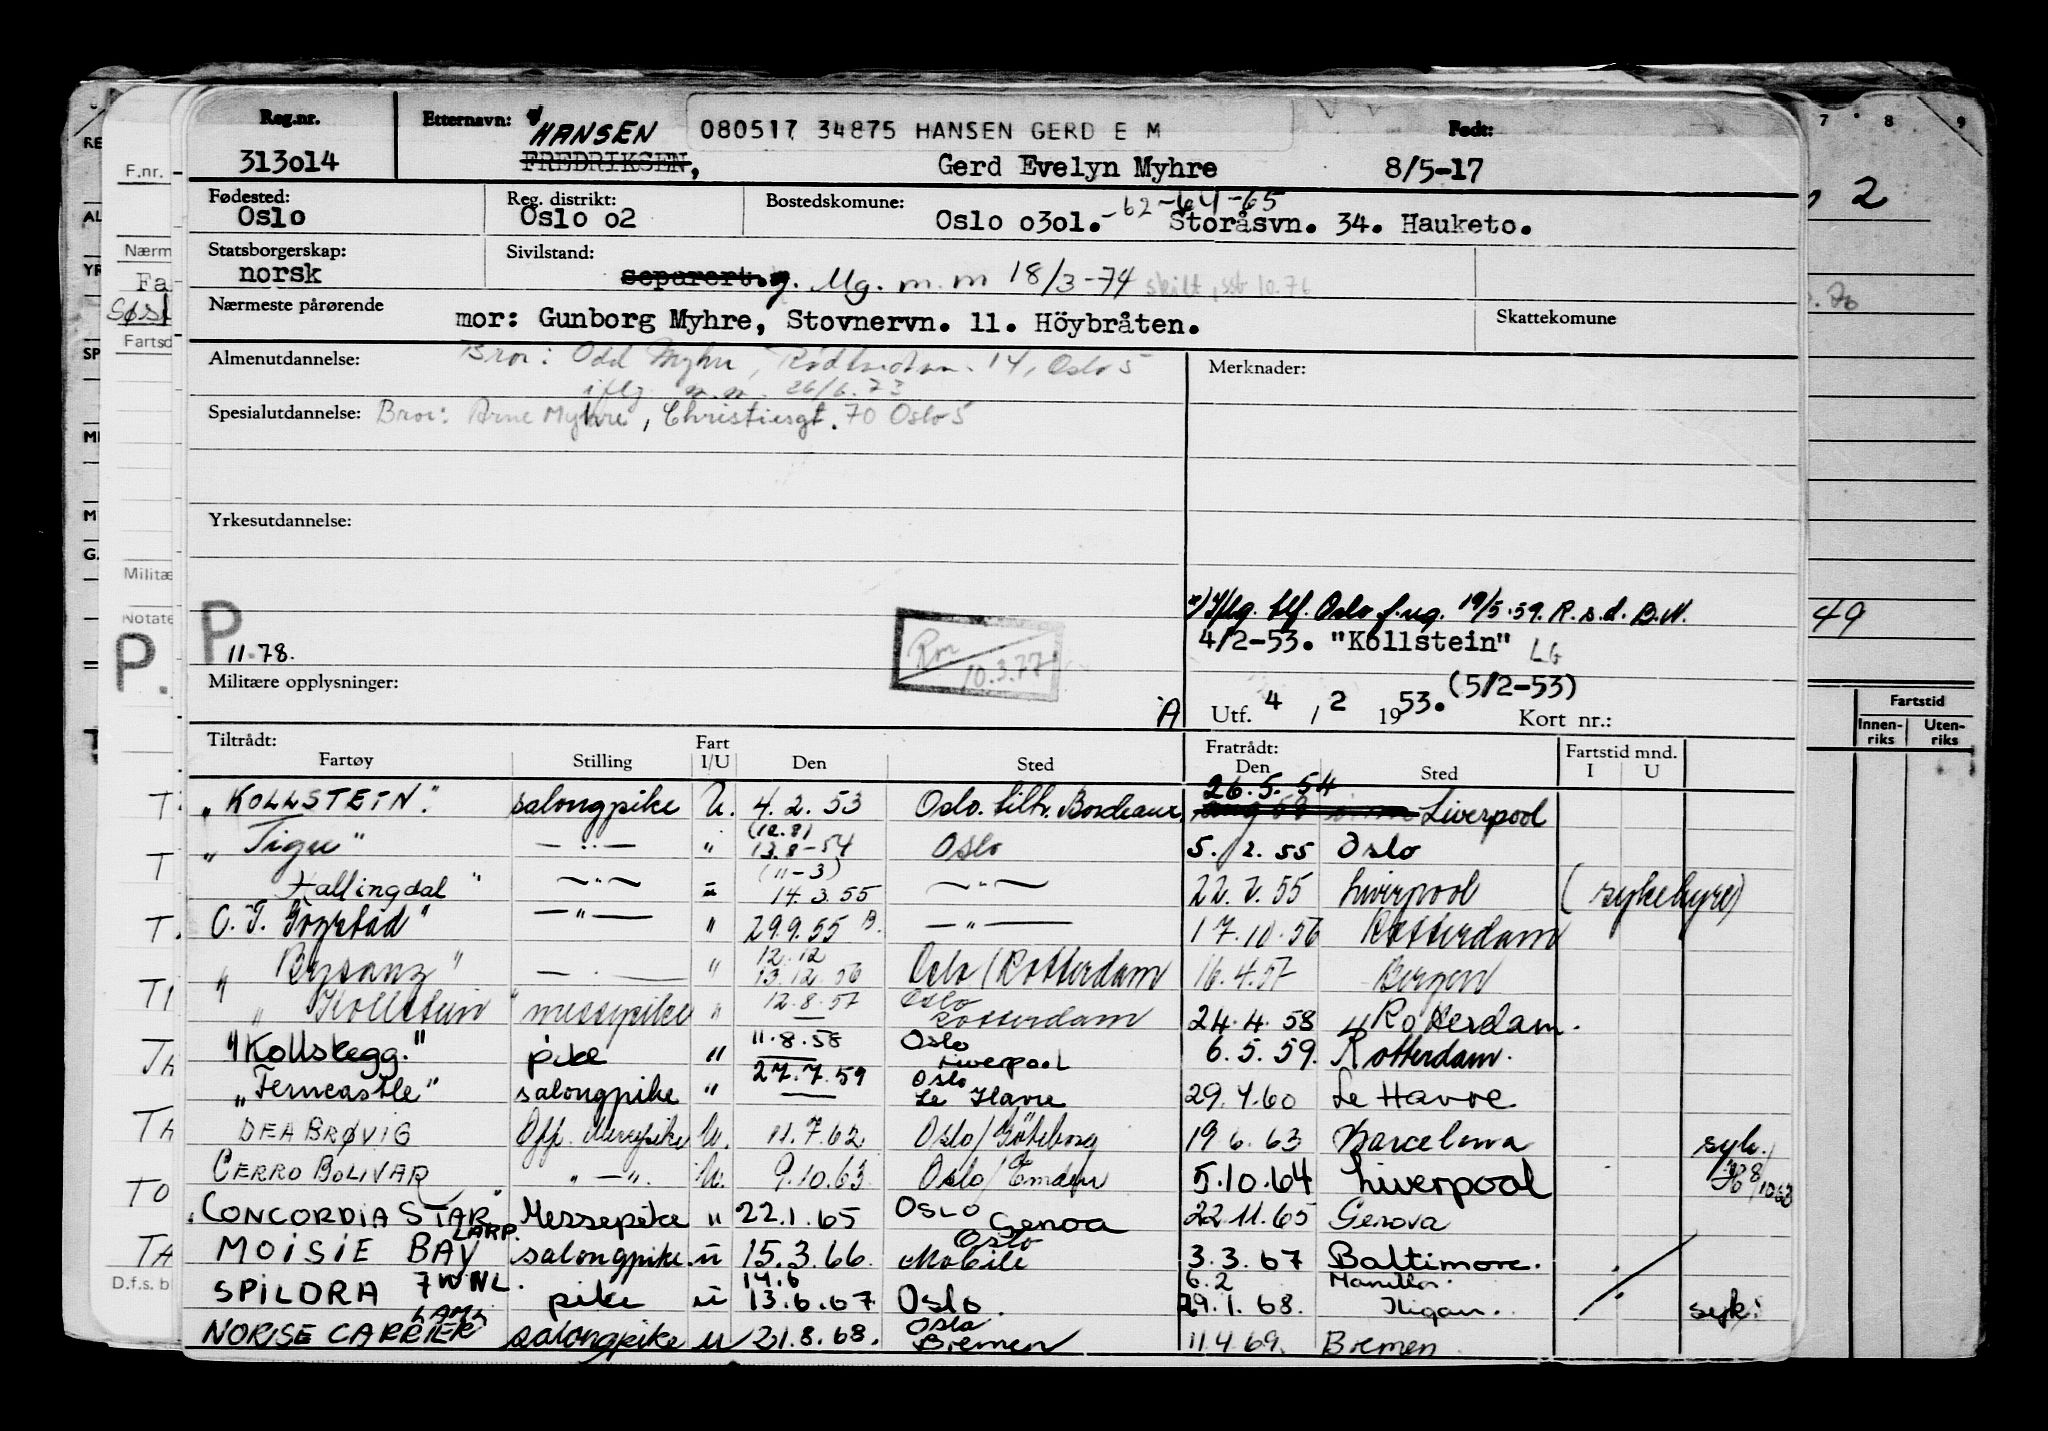 Reg.nr. Etternavn: HANSEN 080517 34875 HANSEN GERD E M Født:
313014 FREDRIKSEN, Gerd Evelyn Myhre 8/5-17
Fødested: Reg. distrikt: Bostedskomune: -62-64-65
Oslo Oslo 02 Oslo 0301. Storåsvn. 34. Hauketo.
Statsborgerskap: Sivilstand:
norsk separert. g. Mg. m.m 18/3-74 skilt, ssb 10.76
Nærmeste pårørende mor: Gunborg Myhre, Stovnervn. 11. Höybråten. Skattekomune
Almenutdannelse: Bror: Odd Myhre, 14, Oslo 5 Merknader:
iflg m.m. 26/6.73
Spesialutdannelse: Bror: Arne Myhre, Christiesgt. 70 Oslo 5
Yrkesutdannelse:
x) Iflg. tlf. Oslo f.ug. 19/5.59. R.s.d. B.N.
P 11.78. Rm 10.3.77 4/2-53. "Kollstein" LG
Militære opplysninger: (5/2-53)
A Utf. 4 / 2 1953. Kort nr.:
Tiltrådt: Fart Fratrådt: Fartstid mnd.
Fartøy Stilling I/U Den Sted Den Sted I U
"KOLLSTEIN" salongpike U. 4.2.53 Oslo. tiltr. Bordeaux. 26.5.54 Liverpool
"Tigre" — " — " (12.8) 13.8-54 Oslo 5. /2. 55 Oslo
Hallingdal" — " — " (11-3) 14.3.55 — " — 22.7.55 Liverpool (sykehyre)
O. T. Tønstad" — " — " 29.9.55 B. — " — 17.10.56 Rotterdam
" Bysanz" — . — " 12.12 13.12.56 Oslo / Rotterdam 16.4.57 Bergen
" Kollstein" messepike " 12.8.57 Oslo Rotterdam 24.4.58 Rotterdam.
"Kollskegg." pike " 11.8.58 Oslo Liverpool 6.5.59. Rotterdam.
"Ferncastle" salongpike " 27.7.59 Oslo Le Havre 29.4.60 Le Havre
DEA BRØVIG Off. Messepike U. 11.7.62 Oslo/Göteborg 19.6.63 Barcelona syk.
CERRO BOLIVAR " — " U. 9.10.63 Oslo/Emden 5.10.64 Liverpool
CONCORDIA STAR Messepike " 22.1.65 OSLO Genoa 22.11.65 Genova
MOISIE BAY LARP. salongpike u 15.3.66 Oslo Mobile 3.3.67 Baltimore.
SPILDRA 7WNL. pike u 14.6 13.6.67 Oslo. 6.2 29.1.68. Manilla. Iligan. syk.
NORSE CARRIER LAMI salongpike u 21.8.68. Oslo Bremen 11.4.69. Bremen
F.nr.
Militæ
Notate
P.
D.f.s. b
7 8 9
2
49
Fartstid
Innen-riks Uten-riks